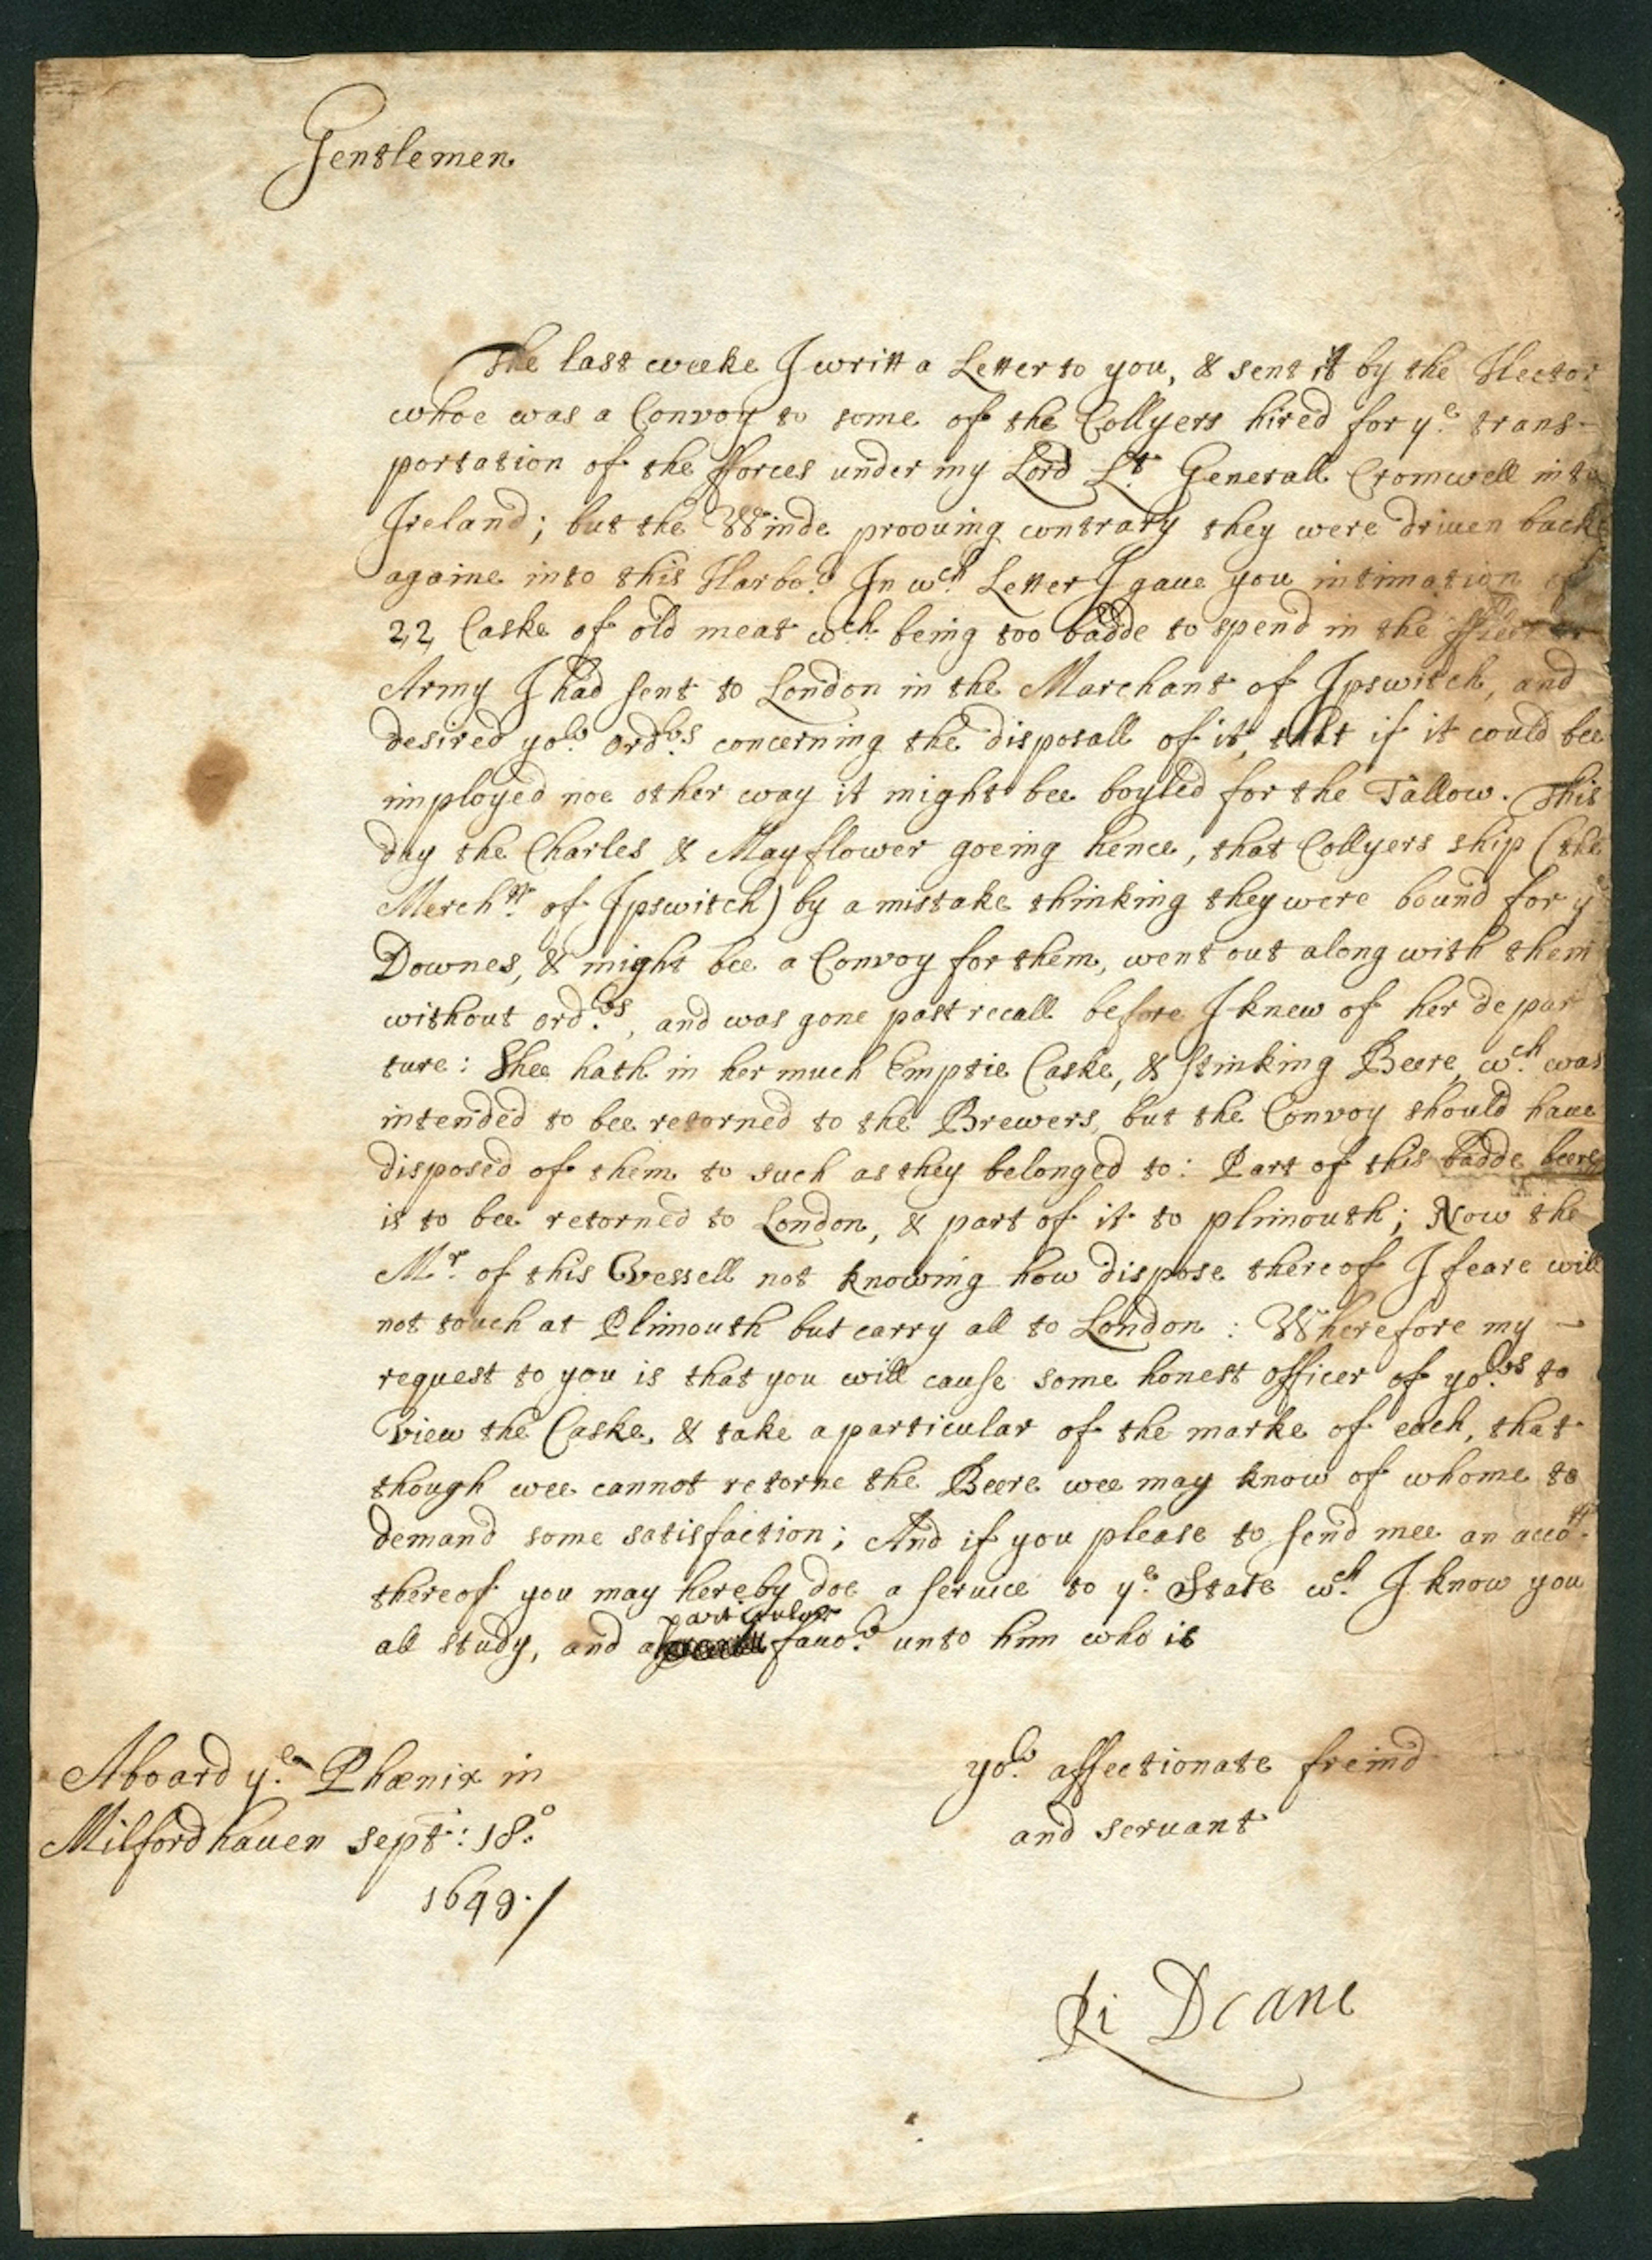 Gentlemen
The last weeke I writt a Letter to you, & sent it by the Hector
whoe was a Convoy to some of the Collyers hired for yͤ trans-
portation of the fforces under my Lord Lᵗ Generall Cromwell into
Ireland; but the Winde proouing contrary they were driuen backe
againe into this Harboʳ. In wᶜʰ Letter I gaue you intimation of
22 Caske of old meat wᶜʰ being too badde to spend in the
Army I had sent to London in the Marchant of Ipswitch, and
desired yoʳ ordʳˢ concerning the disposall of it, that if it could bee
imployed noe other way it might bee boyled for the Tallow. This
day the Charles & Mayflower goeing hence, that Collyers ship (the
Merchᵗ of Ipswitch) by a mistake thinking they were bound for yͤ
Downes, & might bee a Convoy for them, went out along with them
without ordʳˢ, and was gone past recall before I knew of her depar
ture: Shee hath in her much Emptie Caske, & stinking Beere, wᶜʰ was
intended to bee retorned to the Brewers, but the Convoy should haue
disposed of them to such as they belonged to: Part of this badde beere
is to bee retorned to London, & part of it to plimouth; Now the
Mʳ of this Vessell not knowing how dispose thereof I feare will
not touch at Plimouth but carry all to London: Wherefore my -
request to you is that you will cause some honest officer of yoʳˢ to
view the Caske, & take a particular of the marke of each, that
though wee cannot retorne the Beere wee may know of whome to
demand some satisfaction; And if you please to send mee an accoᵗᵗ
thereof you may hereby doe a seruice to yͤ State wᶜʰ I know you
all study, and a particular fauoʳ unto him who is
Aboard yͤ Phœnix in
Milfordhauen sept: 18°
1649./
yoʳ affectionate freind
and seruant
Ri Deane